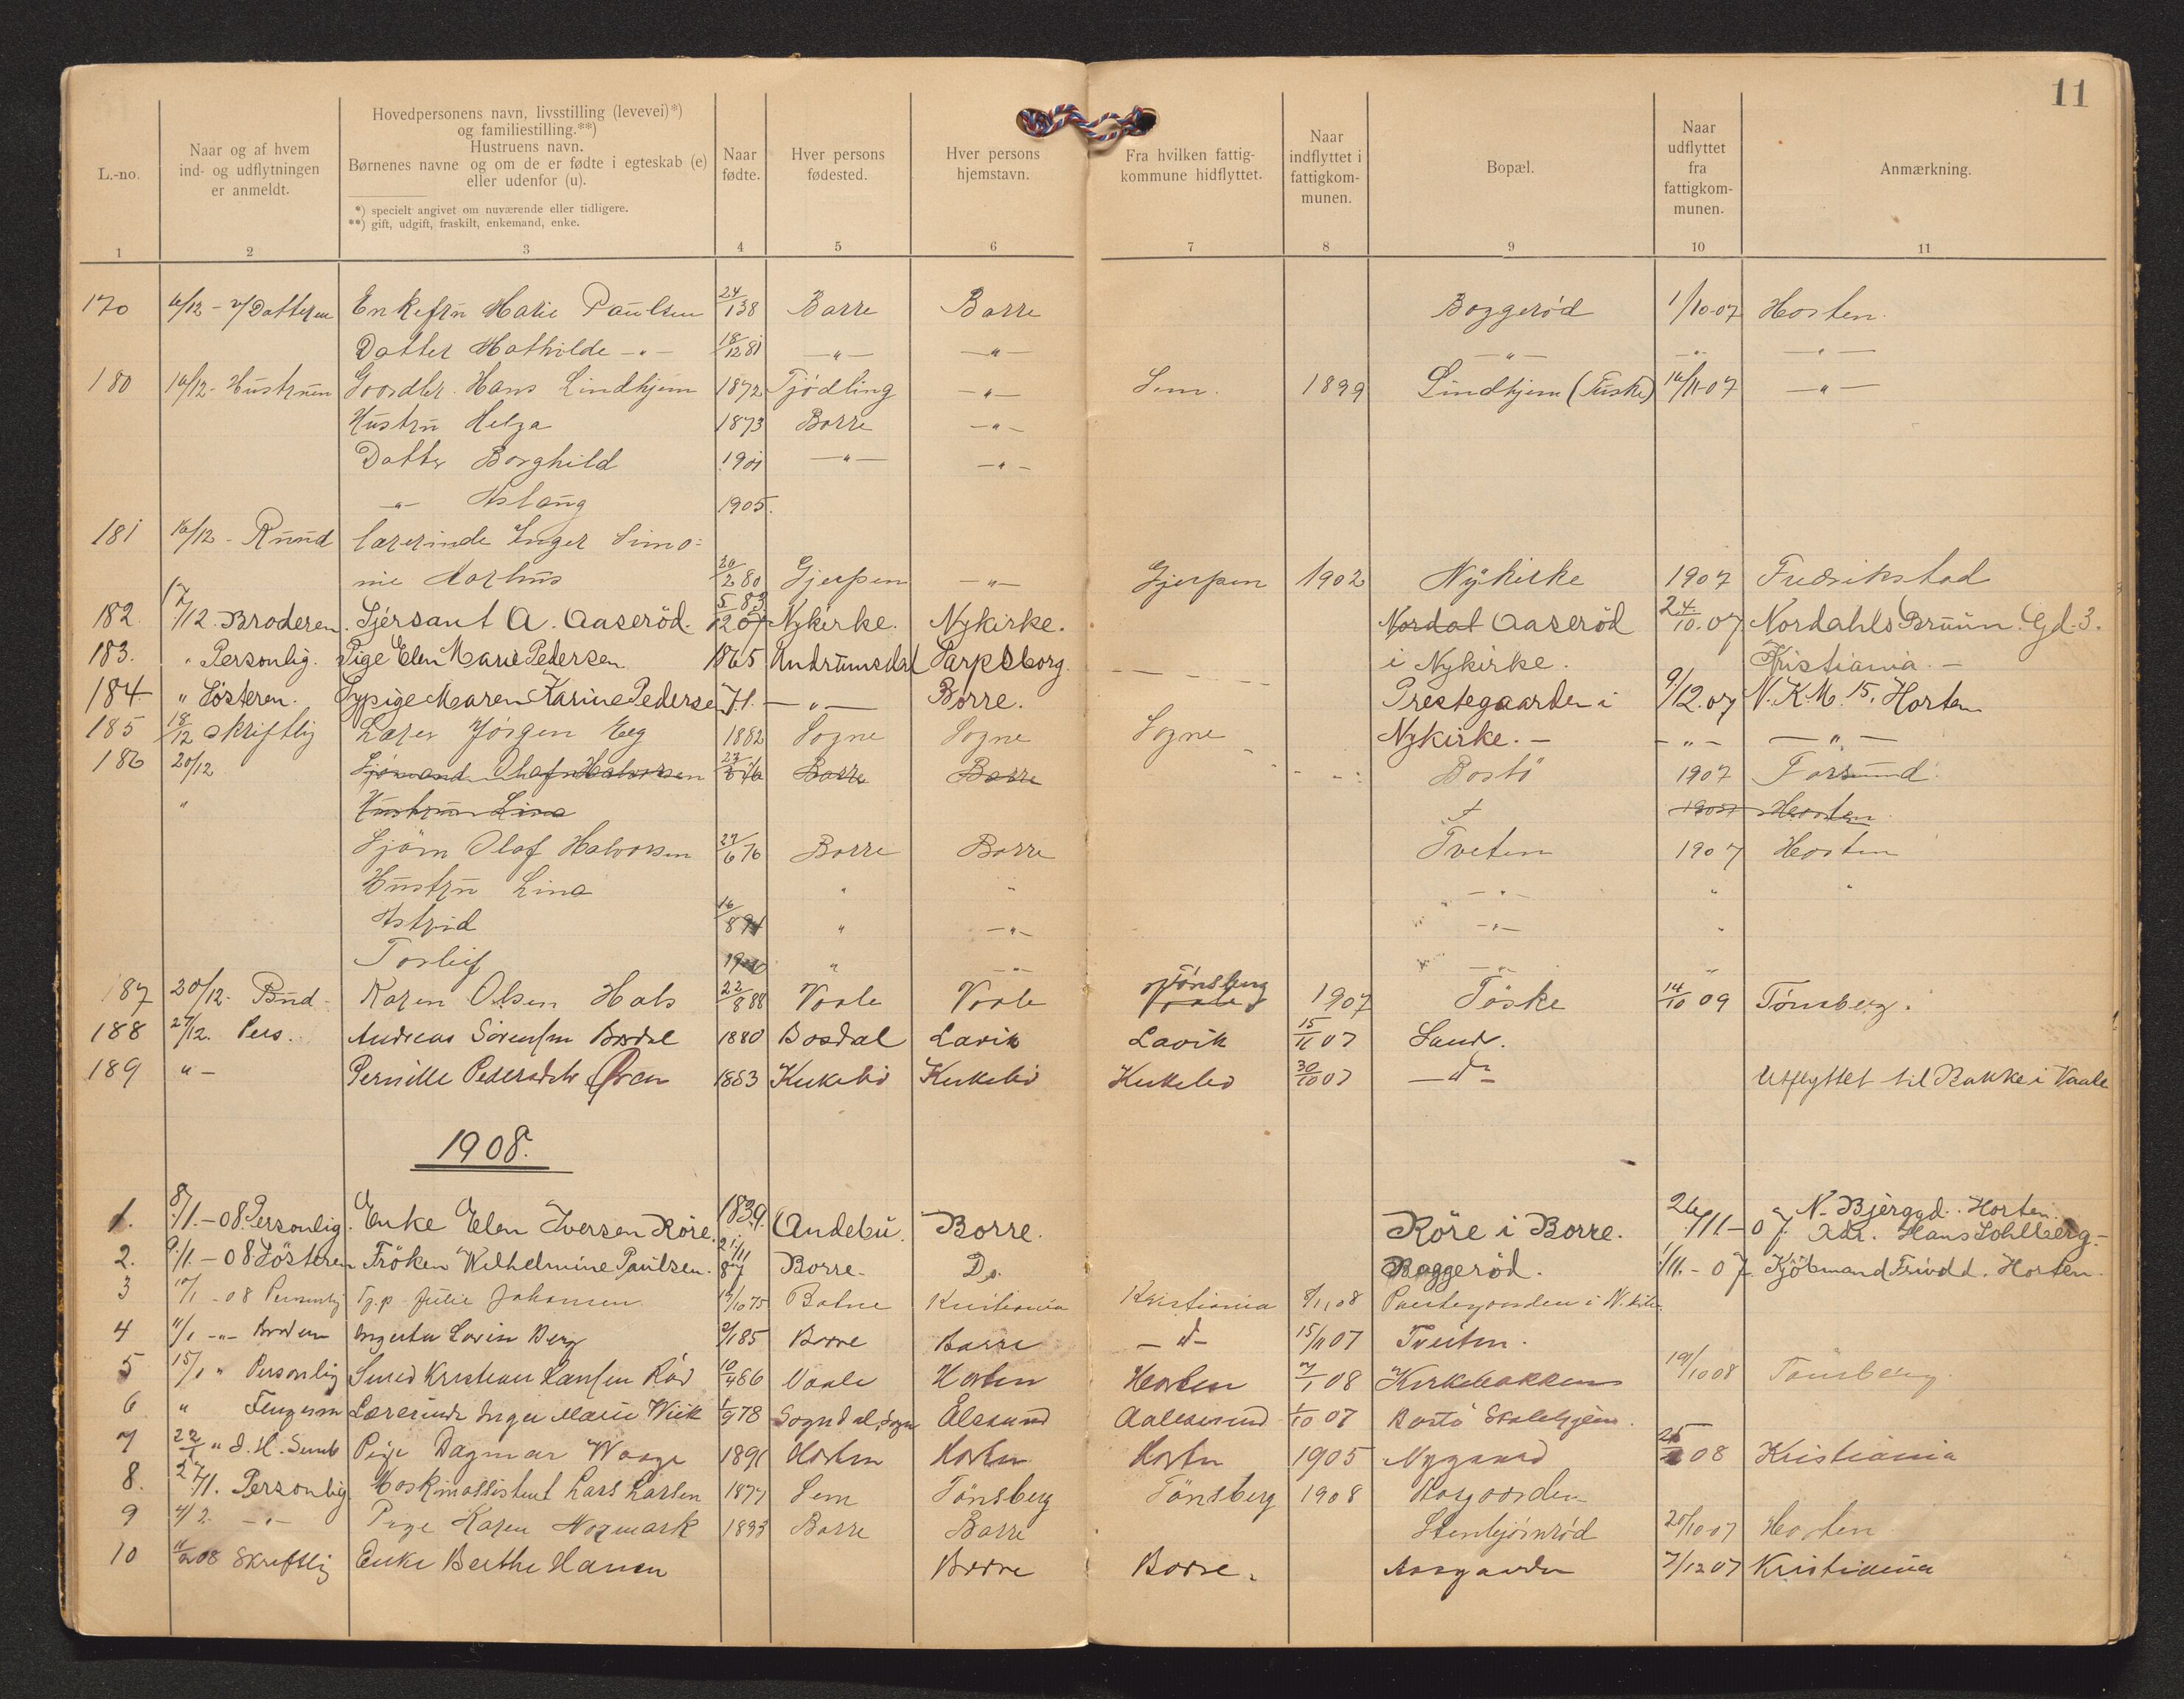 11
L.-no. Naar og af hvem ind- og udflytningen er anmeldt. Hovedpersonens navn, livsstilling (levevei)*) og familiestilling.**) Hustruens navn. Børnenes navne og om de er fødte i egteskab (e) eller udenfor (u). *) specielt angivet om nuværende eller tidligere. **) gift, udgift, fraskilt, enkemand, enke. Naar fødte. Hver persons fødested. Hver persons hjemstavn. Fra hvilken fattigkommune hidflyttet. Naar indflyttet i fattigkommunen. Bopæl. Naar udflyttet fra fattigkommunen. Anmærkning.
1 2 3 4 5 6 7 8 9 10 11
170 6/12 - v/Datteren Enkefru Marie Paulsen 24/1 38 Borre Borre Boggerød 1/10-07 Horten.
Datter Mathilde -"- 18/12 81 -"- -"- -"- -"- -"-
180 16/12 - Hustruen Gaardbr. Hans Lindhjem 1872 Tjødling -"- Sem. 1899 Lindhjem (Fuske) 16/11-07 -"-
Hustru Helga 1873 Borre -"-
Datter Borghild 1901 -"- -"-
-"- Aslaug 1905.
181 16/12 - Ruud lærerinde Inger Simo=
nie Aarhus 20/2 80 Gjerpen -"- Gjerpen 1902 Nykirke 1907 Fredrikstad
182. 17/12. Broderen. Sjersant A. Aaserød. 5/12 83 Nykirke. Nykirke. Nordal Aaserød 24/10.07 Nordahls Bruun. Gd. 3.
183. " Personlig. Pige Elen Marie Pedersen 1865 Undrumsdal Sarpsborg. i Nykirke. Kristiania. -
184 " Søsteren. Sypige Maren Karine Pedersen 71. -"- Borre. Prestegaarden i 9/12.07 N.K.M. 15. Horten
185 18/12 skriftlig Lærer Jørgen Eeg 1882 Sogne Sogne Sogne Nykirke. - -"- -"-
186 20/12 Sjømand Olaf Halvorsen 27/6 76 Borre Borre Bostø 1907 Farsund.
" Hustruen Lina 1907 Horten
Sjøm Olaf Halvorsen 27/6 76 Borre Borre Tveten 1907 Horten
Hustru Lina " " -"- " "
Astrid 16/8 " -"- -"- "
Torleif " -"- -"- "
187 20/12. Bud - Karen Olsen Hals 22/8 88 Vaale Vaale Tønsberg 1907 Føske 14/10 09 Tønsberg.
188 27/12. Pers. Andreas Sørensen Bosdal 1880 Bosdal Lavik Lavik 15/11 07 Sand.
189 " - Pernille Pedersdtr Øren 1883 Kirkebø Kirkebø Kirkebø 30/10 07 - d° - Utflyttet til Bakke i Vaale
1908.
1. 8/1. - 08. Personlig. Enke Elen Iversen Røre. 1839. Andebu. Borre. Røre i Borre. 26/11 - 07. N. Bjerggd. Horten. Adr. Hans Sohlberg. -
2. 9/1. - 08. Søsteren Frøken Wilhelmine Paulsen. 21/11 87 Borre. Do. Boggerød. 1/11. - 07. Kjøbmand Friodd. Horten.
3 10/1 - 08 Personlig Tj.p. Julie Johansen 75 Botne Kristiania Kristiania 8/1 08 Prestegaarden i N.kirke
4 11/1 -"- Broderen Lovise Berg 9/1 85 Borre Borre - d - 15/11 07 Tveiten.
5 15/1 " Personlig Smed Kristian Hansen Rød 10/4 86 Vaale Horten Horten 7/1 08 Kirkebakken 19/10 08 Tønsberg.
6 " Lærerinde Inger Marie Wiik 1/9 78 Sogndal, Sogn Ålesund Aalesund 1/10 07 Bostø Skolehjem.
7 22/1 " Pige Dagmar Waage 1891 Horten Horten Horten 1905 Nygaard 08 Kristiania
8. 27/1. Personlig. Lars Larsen 1877 Sem Tønsberg Tønsberg 1908
9 4/2. -"- Pige Karen Nogmark 1893 Borre Borre Stenbjørnrød 20/10-07 Horten
10 11/2 08 Skriftlig Enke Berthe Hansen Borre Borre. Aasgaarden 7/12 07 Kristiania